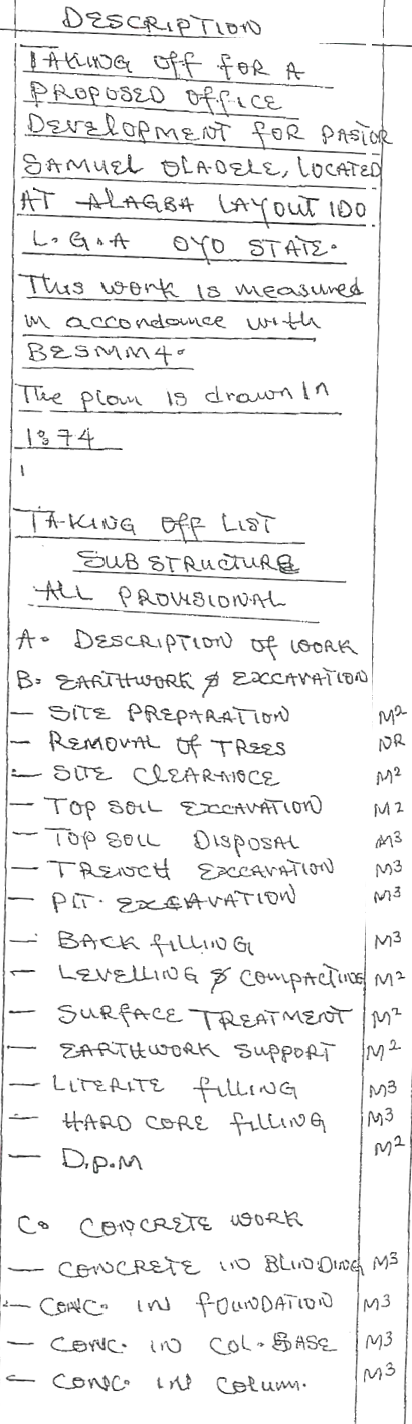 DESCRIPTION
TAKING OFF FOR A
PROPOSED OFFICE
DEVELOPMENT FOR PASTOR
SAMUEL OLADELE, LOCATED
AT ALAGBA LAYOUT IDO
L.G.A OYO STATE.
This work is measured
in accordance with
BESMM4.
The plan is drawn in
1:74
1
TAKING OFF LIST
SUBSTRUCTURE
ALL PROVISIONAL
A. DESCRIPTION OF WORK
B. EARTHWORK & EXCCAVATION
— SITE PREPARATION M2
— REMOVAL OF TREES NR
— SITE CLEARANCE M2
— TOP SOIL EXCCAVATION M2
— TOP SOIL DISPOSAL M3
— TRENCH EXCCAVATION M3
— PIT. EXCAVATION M3
— BACK FILLING M3
— LEVELLING & COMPACTING M2
— SURFACE TREATMENT M2
— EARTHWORK SUPPORT M2
— LITERITE FILLING M3
— HARD CORE FILLING M3
— D.P.M M2
C. CONCRETE WORK
— CONCRETE IN BLINDING M3
— CONC. IN FOUNDATION M3
— CONC. IN COL. BASE M3
— CONC. IN COLUMN. M3